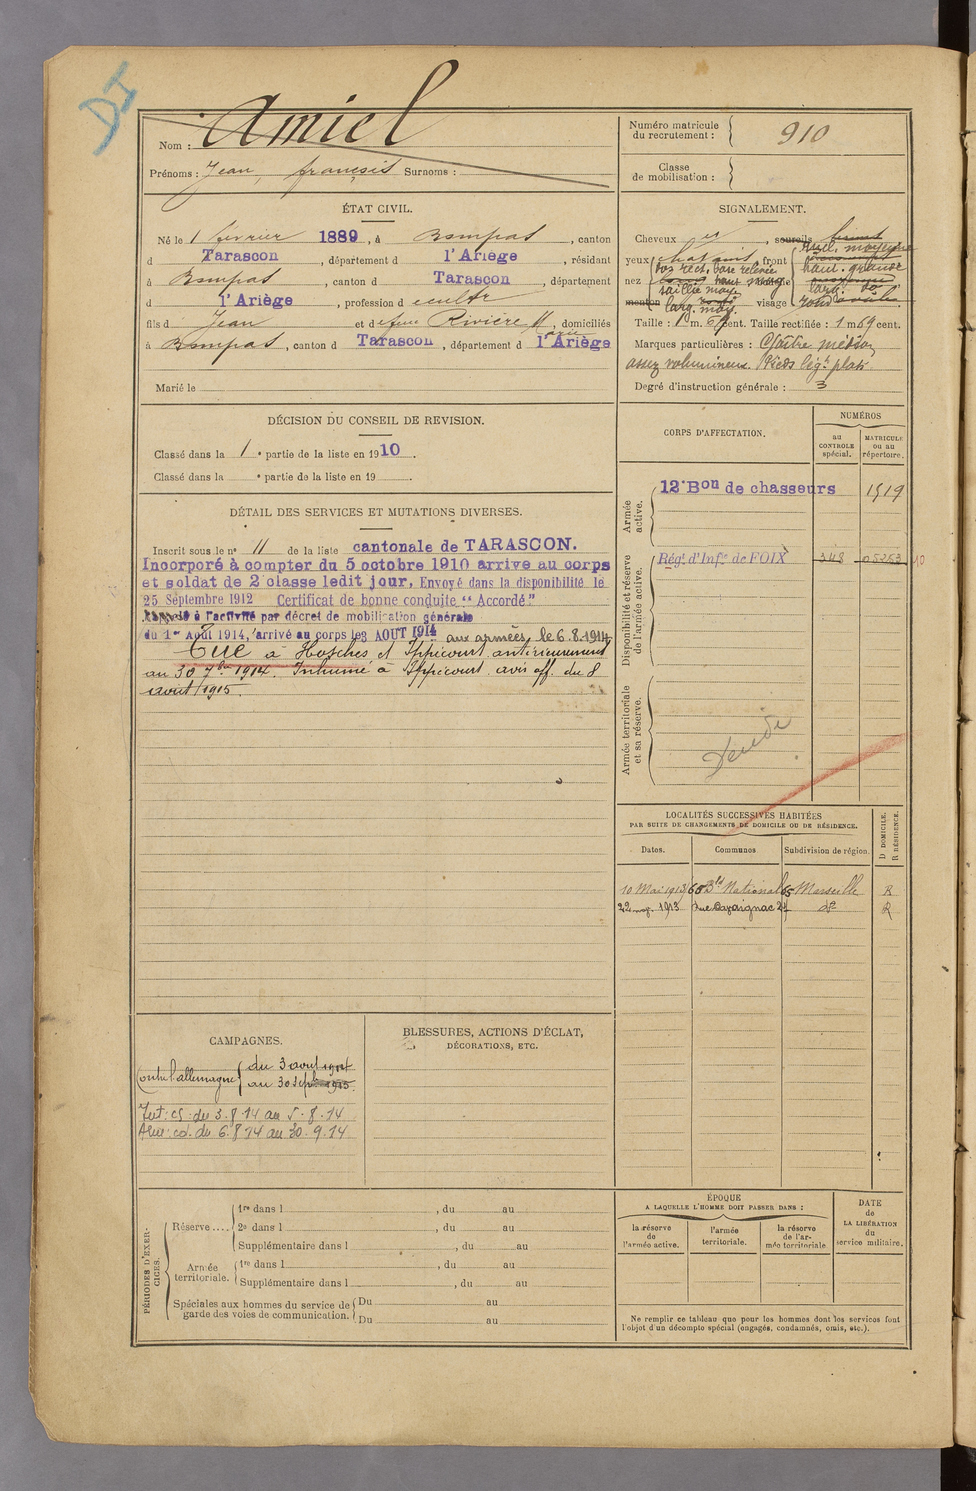 DI
Nom : Amiel
Prénoms : Jean, françois Surnoms :
Numéro matricule
du recrutement :
910
Classe
de mobilisation :
ÉTAT CIVIL.
Né le 1 février 1889, à Bompas, canton
d Tarascon, département d l'Ariège, résidant
à Bompas, canton d Tarascon, département
d l'Ariège, profession d cultr
fils d Jean et d feue Rivière M, domiciliés
à Bompas, canton d Tarascon, département d l'Ariège
Marié le
SIGNALEMENT.
Cheveux, sourcils
yeux chatains, front
dos rect. base relevée
nez
saillie moy.
larg. moy.
incl. moyenne
haut. grande
larg. do
menton visage rond
Taille : 1 m. cent. Taille rectifiée : 1 m 69 cent.
Marques particulières :
assez volumineux. Pieds légt plats
Degré d'instruction générale : 3
DÉCISION DU CONSEIL DE REVISION.
Classé dans la 1e partie de la liste en 1910.
Classé dans la e partie de la liste en 19 .
CORPS D'AFFECTATION.
NUMÉROS
au
CONTROLE
spécial.
MATRICULE
ou au
répertoire.
Armée
active.
12e Bon de chasseurs 1519
Disponibilité et réserve
de l'armée active.
Régt d'Infie de FOIX 348 05253 10
Armée territoriale
et sa réserve.
DÉTAIL DES SERVICES ET MUTATIONS DIVERSES.
Inscrit sous le no 11 de la liste cantonale de TARASCON.
Incorporé à compter du 5 octobre 1910 arrive au corps
et soldat de 2e classe ledit jour. Envoyé dans la disponibilité le
25 Septembre 1912 Certificat de bonne conduite "Accordé"
Rappelé à l'activité par décret de mobilisation générale
du 1er Août 1914, arrivé au corps le 3 AOUT 1914 aux armées le 6.8.1914
Tué à Hosches et Ippécourt antérieurement
au 30 7bre 1914. Inhumé à Ippécourt avis off. du 8
août 1915.
LOCALITÉS SUCCESSIVES HABITÉES
PAR SUITE DE CHANGEMENTS DE DOMICILE OU DE RÉSIDENCE.
Dates. Communes Subdivision de région.
D DOMICILE.
R RÉSIDENCE.
10 Mai 1913 68 Bd National 65 Marseille R
22 1913 Rue Cavaignac 24 do R
CAMPAGNES.
Contre l'allemagne du 3 aout 1914
au 30 Sept 1915
Int: cs: du 3.8.14 au 5.8.14
Aux: cd. du 6.8.14 au 30.9.14
BLESSURES, ACTIONS D'ÉCLAT,
DÉCORATIONS, ETC.
PÉRIODES D'EXER-
CICES.
Réserve ....
1re dans l , du au
2e dans l , du au
Supplémentaire dans l , du au
Armée
territoriale.
1re dans l , du au
Supplémentaire dans l , du au
Spéciales aux hommes du service de
garde des voies de communication.
Du au
Du au
ÉPOQUE
A LAQUELLE L'HOMME DOIT PASSER DANS :
la réserve
de
l'armée active.
l'armée
territoriale.
la réserve
de l'ar-
mée territoriale
DATE
de
LA LIBÉRATION
du
service militaire.
Ne remplir ce tableau que pour les hommes dont les services font
l'objet d'un décompte spécial (engagés, condamnés, omis, etc.).